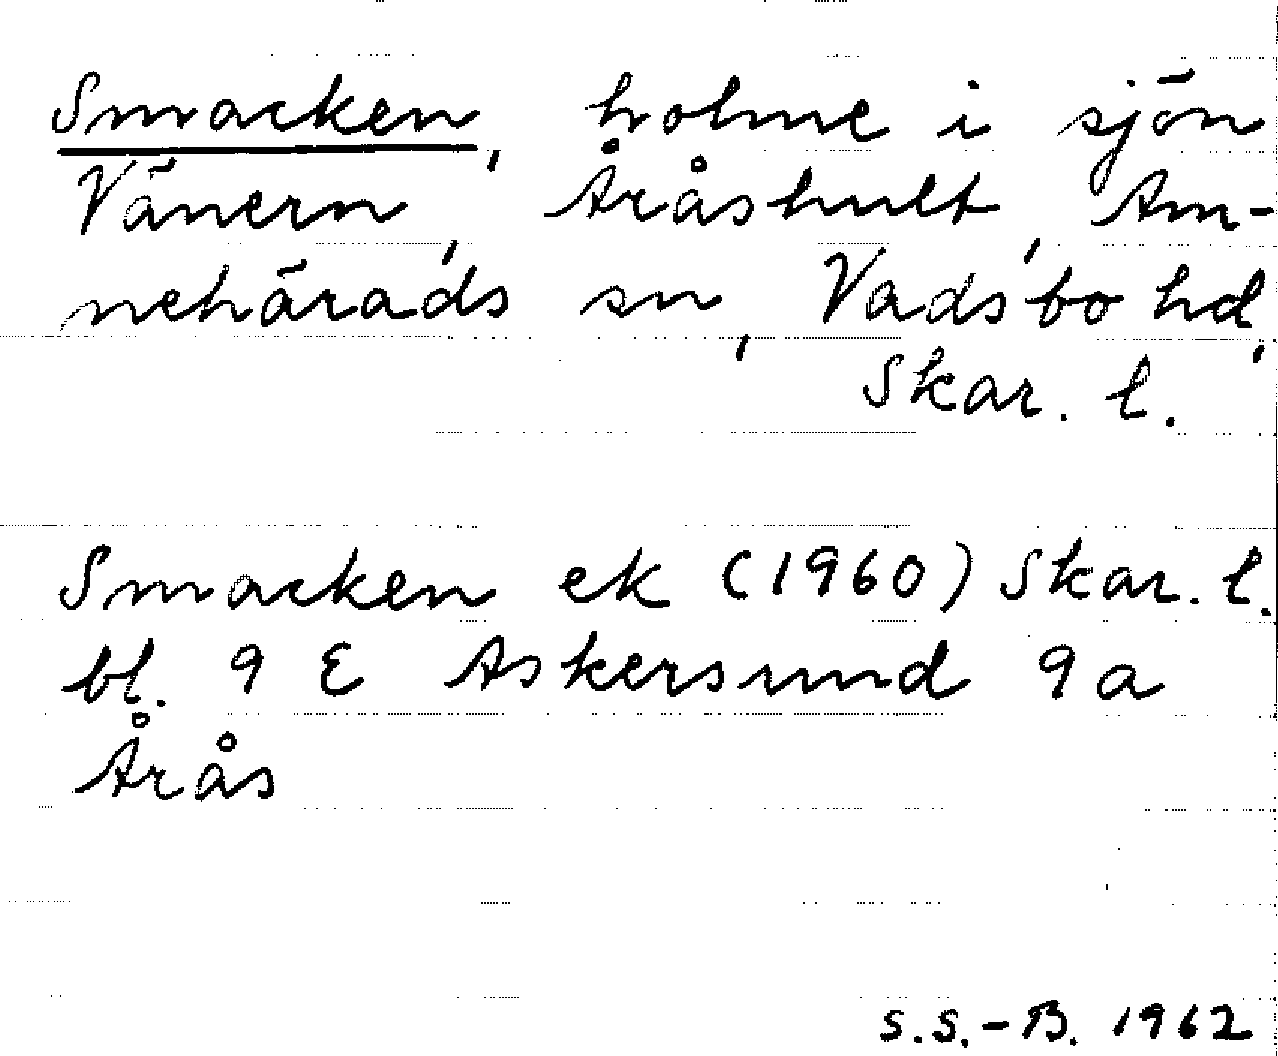 Smacken, holme i sjön
Vänern, Åråshult, Am-
nehärads sn, Vadsbo hd,
Skar. l.
Smacken ek (1960) Skar. l.
bl. 9 E Askersund 9a
Årås
S.S.-B. 1962